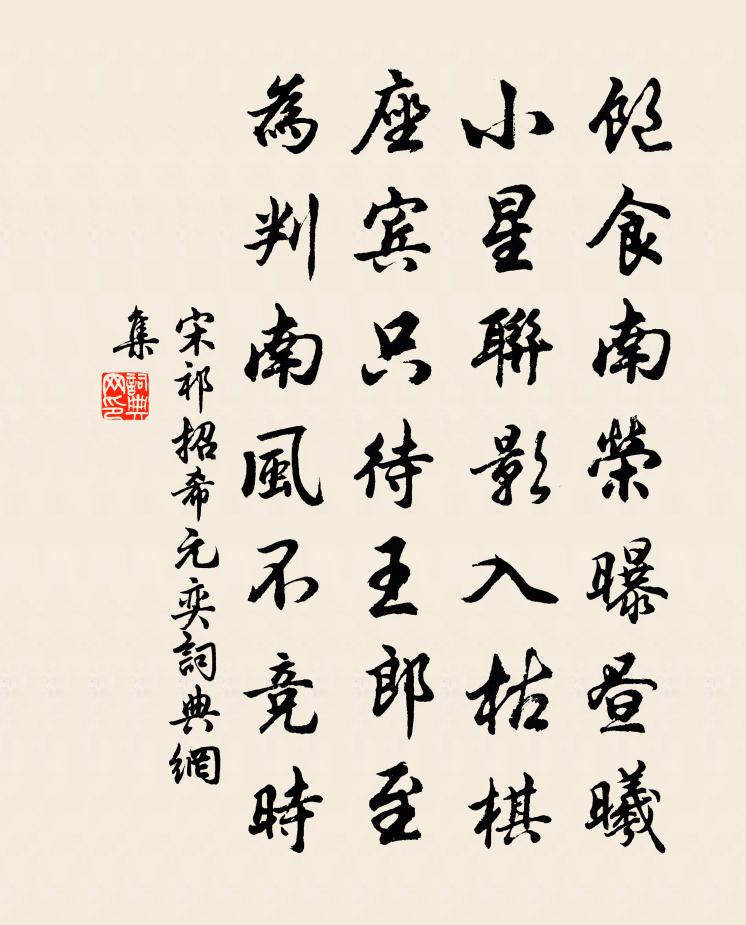 飽食南榮曝晝曦
小星聯影入枯棋
座賓只待王郎至
為判南風不競時
宋祁招希元奕詞典網
集
詞典網印